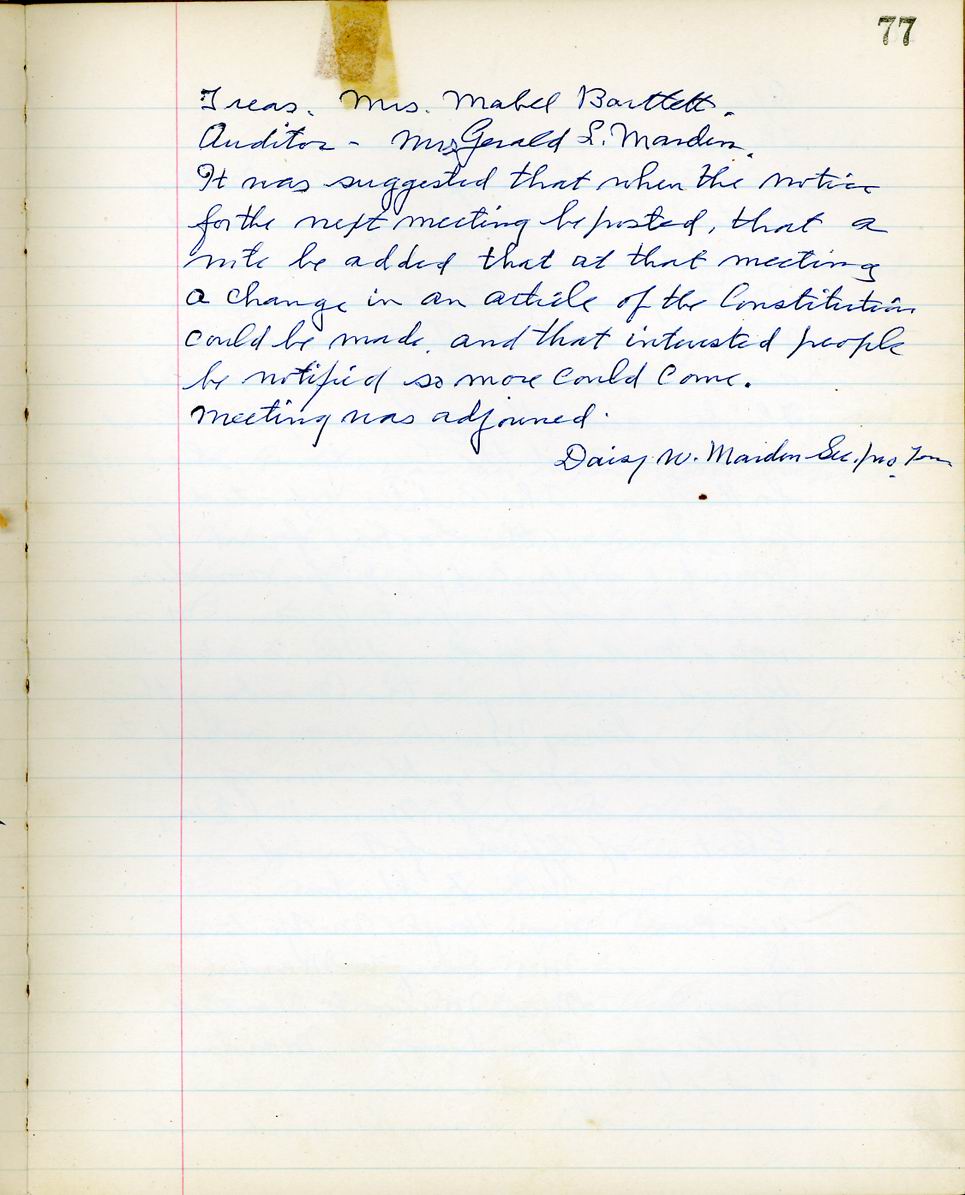 77
Treas. Mrs. Mabel Bartlett.
Auditor - Mrs Gerald L. Marden.
It was suggested that when the notice
for the next meeting be posted, that a
note be added that at that meeting
a change in an article of the Constitution
could be made, and that interested people
be notified so more could come.
Meeting was adjourned.
Daisy W. Marden Sec. pro. Tem